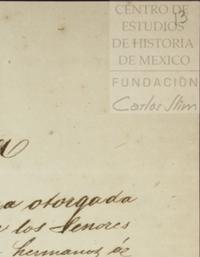 13
CENTRO DE
ESTUDIOS
DE HISTORIA
DE MEXICO
FUNDACIÓN
Carlos Slim
a otorgada
los Señores
hermanos de